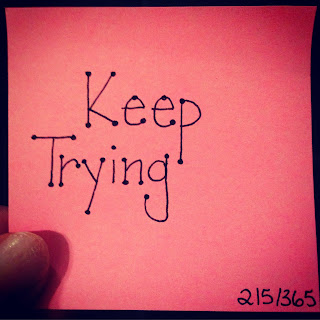 Keep
Trying
215/365